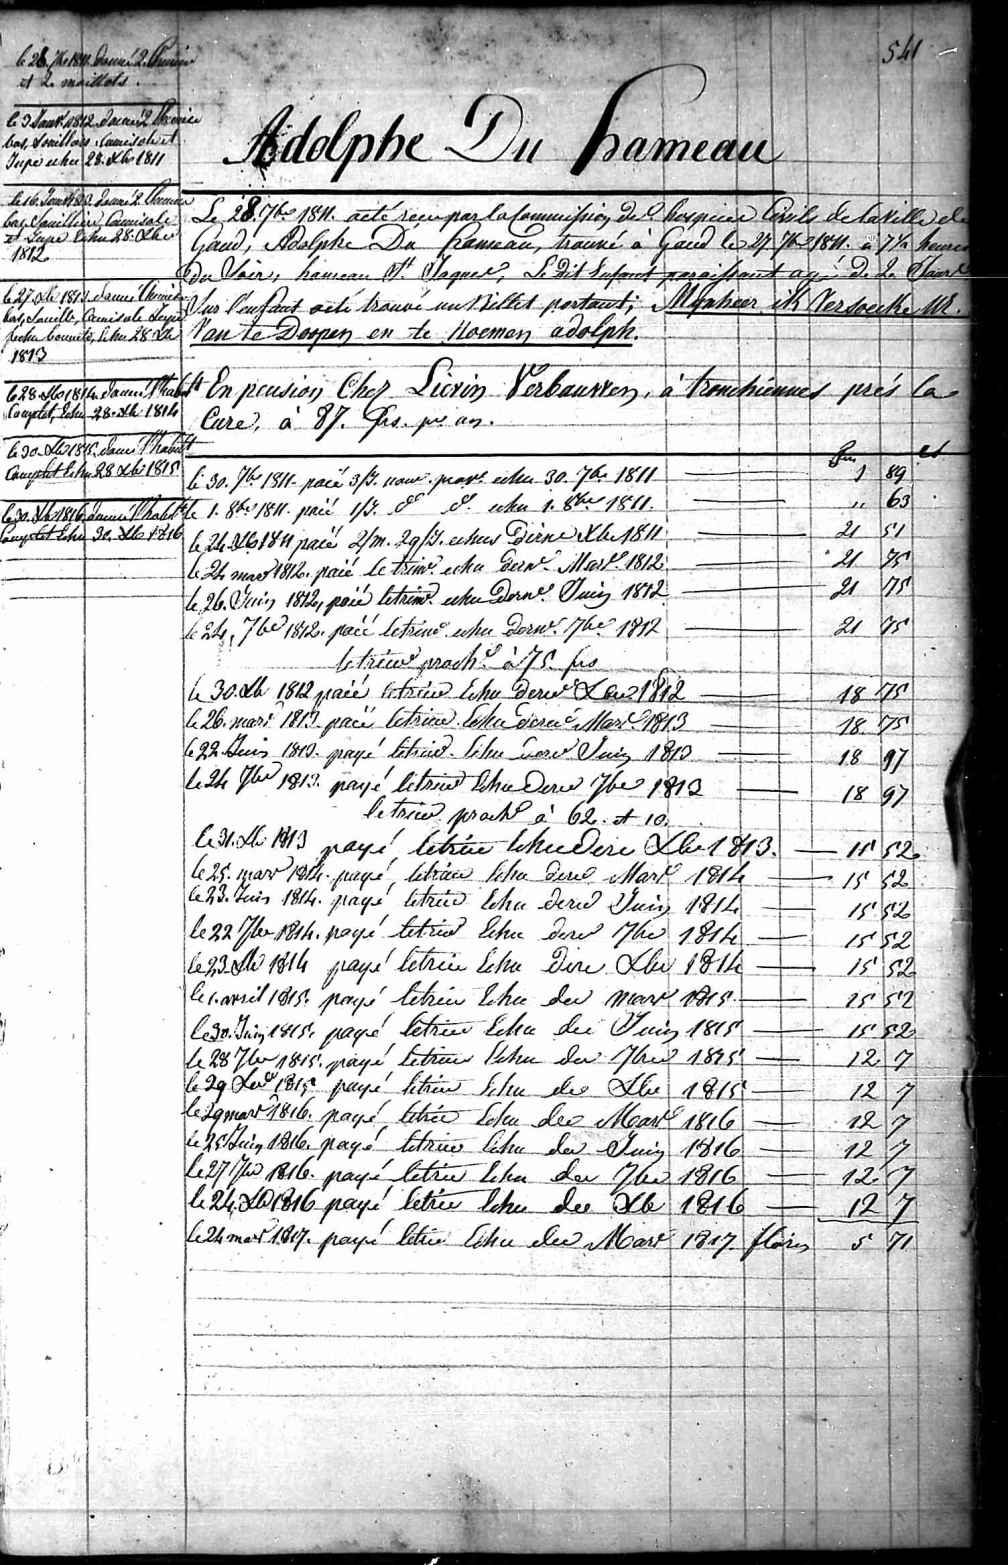 541
le 28. 7bre 1811. donné 2. Chemises
et 2. maillots.
le 3 Janv. 1812 donné 2 Chemises
bas, Souilliers, Camisole et
Jupe echu 28. Xbre 1811
le 16. Janv. donné 2. Chemises
bas, Souilliers, Camisole
et Jupe Echu 28. Xbre
1812
le 27. Xbre 1813 donné Chemise
bas, Camisole Jupe
bonnets, Echu 28 Xbre
1813
le 28 Xbre 1814. donné l'habilt
Complet, Echu 28. Xbre 1814
le 30. Xbre 1815. donné l'habilt
Complet Echu 28 Xbre 1815
le 30. Xbre 1816. donné l'habilt
Complet Echu 30. Xbre 1816
Adolphe Du hameau
Le 28. 7bre 1811. a été recu par la Commission des hospices Civils de la ville de
Gand, Adolphe Du hameau, trouvé à Gand le 27. 7bre 1811. à 7 1/2 heures
du Soir, hameau St. Jaques, Le dit Enfant paraissant agé de 2. Jours
Sur l'enfant a été trouvé un Billet portant; Mynheer ik Versoeke UE.
Van te Doopen en te Noemen adolph.
En pension Chez Lievin Verbauwen, à tronchiennes prés la
Cure, à 87. frs. pr an.
frs ct
le 30. 7bre 1811 paié 3/j. nour. prov. echu 30. 7bre 1811 1 89
le 1. 8bre 1811. paié 1/j. do do. echu 1. 8bre 1811. ,, 63
le 24 Xbre 1811 paié 2/m. 29/j. echus Dernr Xbre 1811 21 51
le 24 mars 1812. paié le trimr echu dernr. Mars 1812 21 75
le 26. Juin 1812, paié le trimr echu dernr. Juin 1812 21 75
le 24. 7bre 1812. paié le trimr echu dernr. 7bre 1812 21 75
le trimr prochn à 75. frs
le 30. Xbre 1812 paié le trimr Echu dernr Xbre 1812 18 75
le 26. mars 1813. paié le trimr Echu dernr Mars 1813 18 75
le 22 Juin 1813. payé le trimr Echu dernr Juin 1813 18 97
le 24 7bre 1813. payé le trimr Echu Dernr 7bre 1813 18 97
le trimr prochn à 62. et 10.
le 31. Xbre 1813 payé le trimr Echu dernr Xbre 1813. 15 52
le 25. mars 1814. payé le trimr Echu dernr Mars 1814 15 52
le 23. Juin 1814. payé le trimr Echu dernr Juin 1814 15 52
le 22 7bre 1814. payé le trimr Echu dernr 7bre 1814 15 52
le 23. Xbre 1814 payé le trimr Echu dernr Xbre 1814 15 52
le 1. avril 1815. payé le trimr Echu der mars 1815 15 52
le 30. Juin 1815. payé le trimr Echu der Juin 1815 15 52
le 28 7bre 1815. payé le trimr Echu der 7bre 1815 12 7
le 29 Xbre 1815 payé le trimr Echu der Xbre 1815 12 7
le 29 mars 1816. payé le trimr Echu der Mars 1816 12 7
le 25 Juin 1816. payé le trimr Echu der Juin 1816 12 7
le 27 7bre 1816. payé le trimr Echu der 7bre 1816 12 7
le 24. Xbre 1816 payé le trimr Echu der Xbre 1816 12 7
le 24 mars 1817. payé le trimr Echu der Mars 1817. florins 5 71